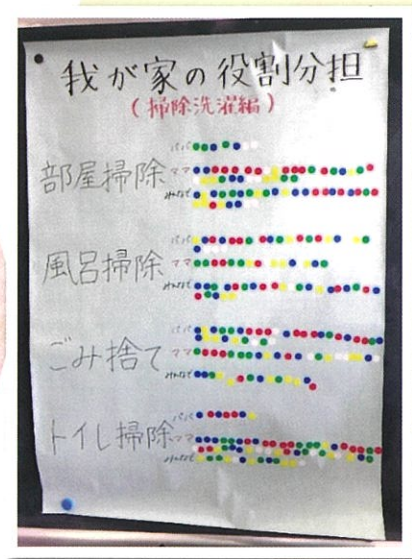 我が家の役割分担
(掃除洗濯編)
部屋掃除
パパ
ママ
みんなで
風呂掃除
パパ
ママ
みんなで
ごみ捨て
パパ
ママ
みんなで
トイレ掃除
パパ
ママ
みんなで